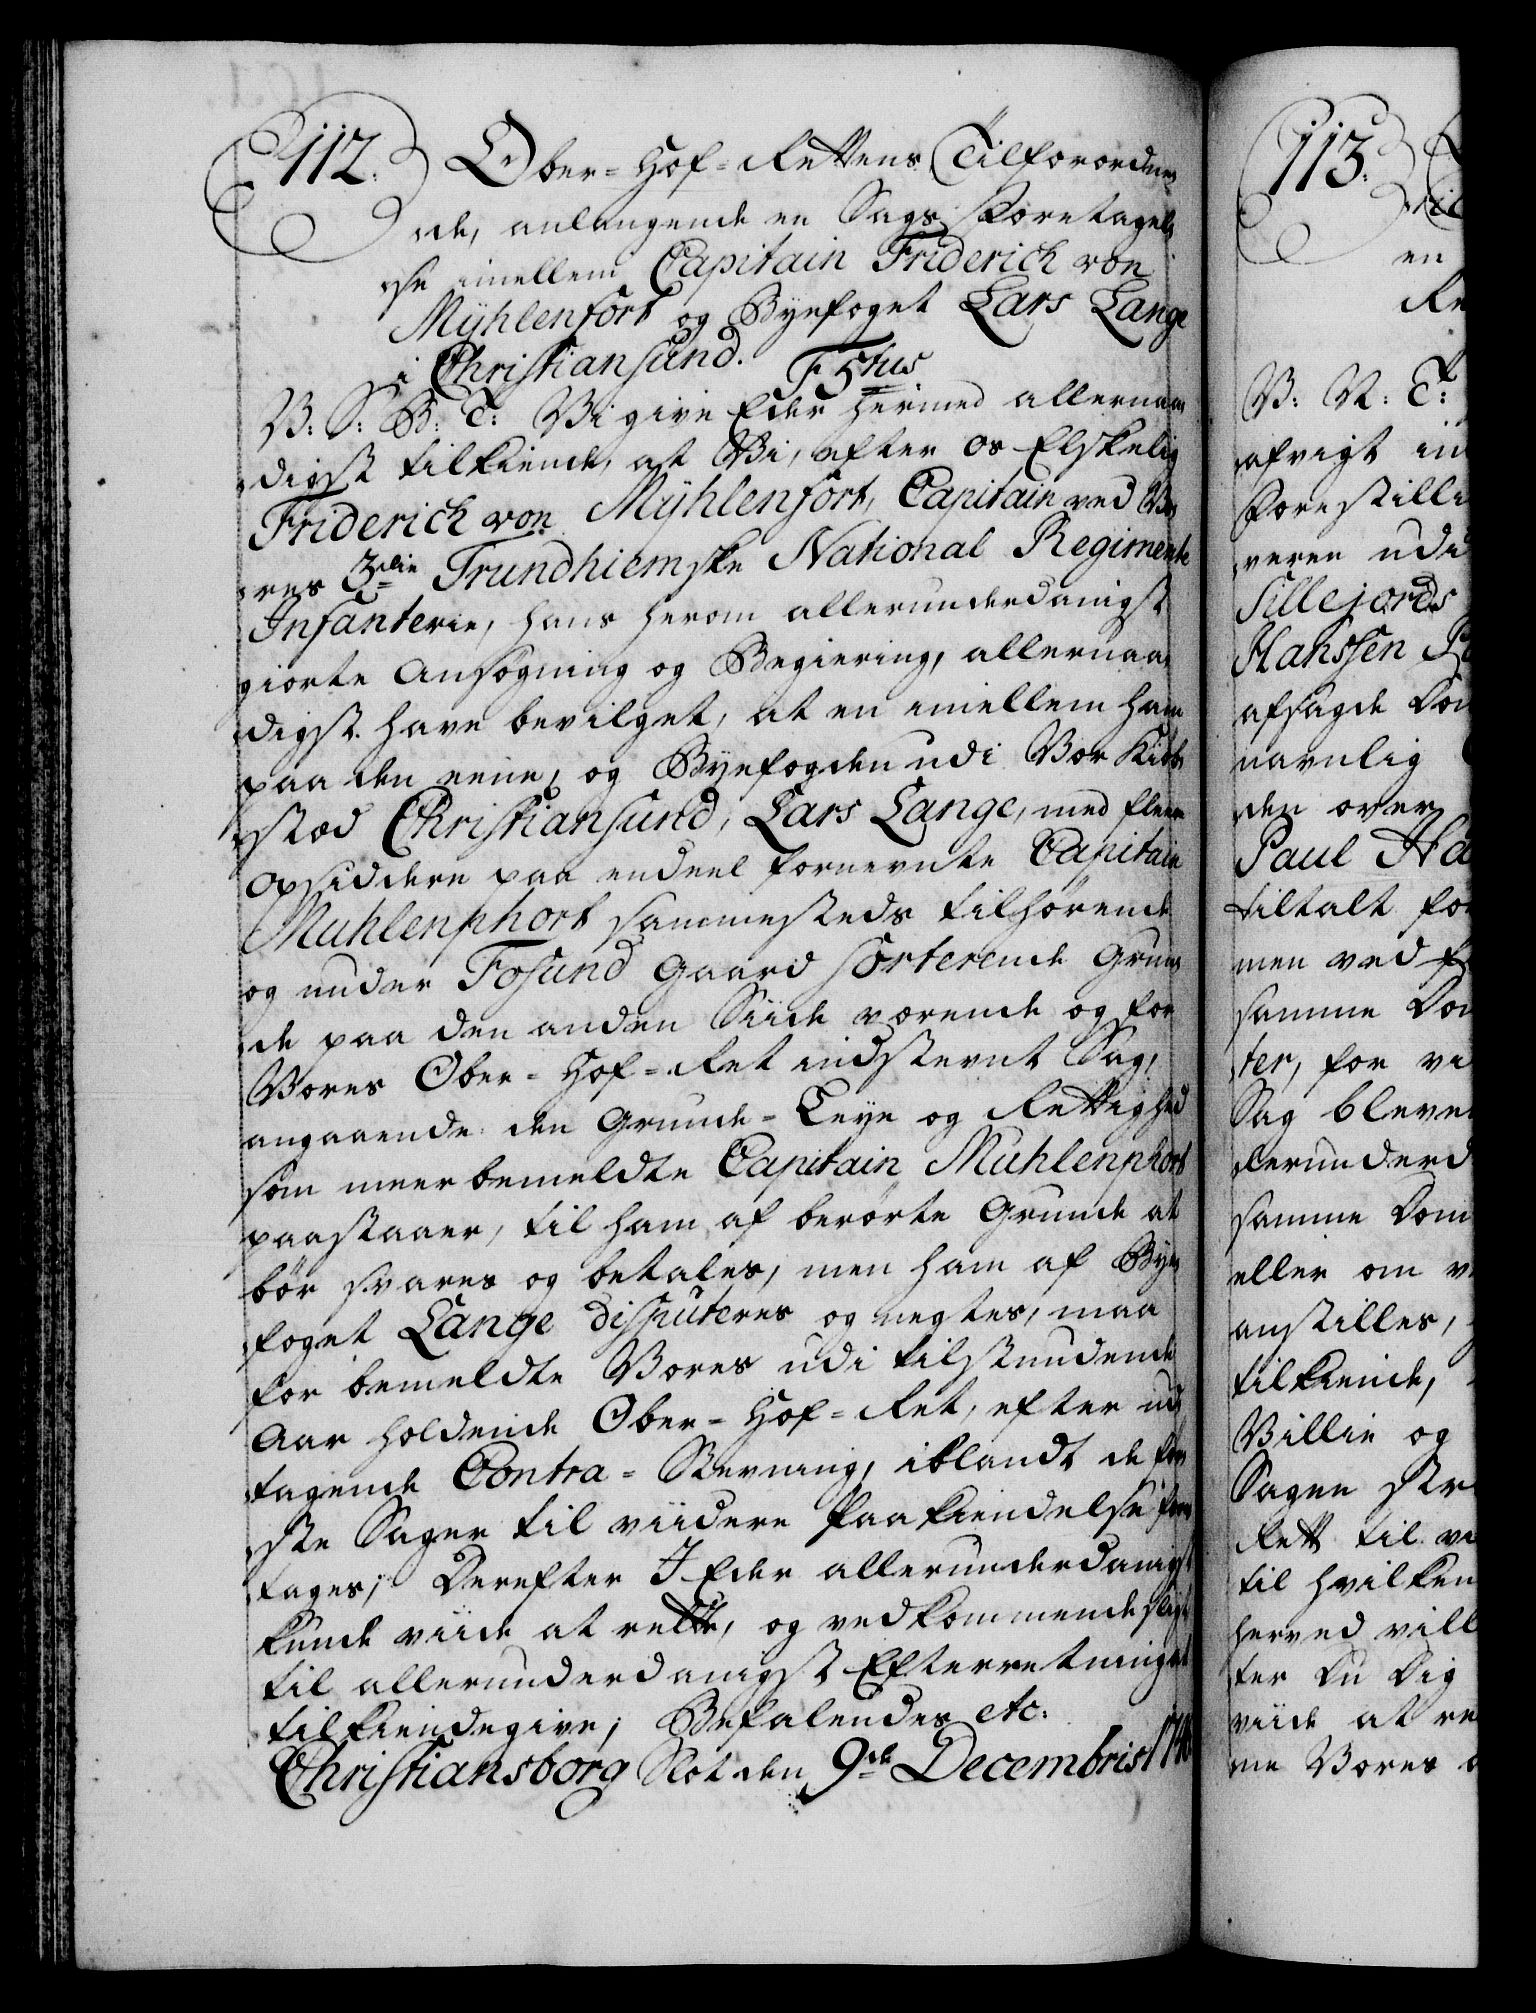 112. Ober-Hof-Rettens Tilforordne
de, anlangende en Sags Foretagel
se imellem Capitain Friderich von
Mÿhlenfort og Byefoget Lars Lange
i Christiansund. F 5tus
V: S: B: T: Vi give Eder hermed allernaa
digst tilkiende, at Vi, efter os Elskelig
Friderich von Mÿhlenfort, Capitain ved Vo
res 3die Trundhiemske National Regimente
Infanterie, hans herom allerunderdanigst
giorte Ansøgning og Begiering, allernaa
digst have bevilget, at en imellem ham
paa den eene, og Byefogden udi Vor Kiøb
stæd Christiansund, Lars Lange, med fleere
Opsiddere paa endeel fornevnte Capitain
Muhlenphort sammesteds tilhørende
og under Fosund Gaard sorterende Grun
de paa den anden Siide værende og for
Vores Ober-Hof-Ret indstevnt Sag,
angaaende den Grunde-Leye og Rettighed
som meerbemeldte Capitain Muhlenphort
paastaaer, til ham af berørte Grunde at
bør svares og betales, men ham af Bye
foget Lange disputeres og negtes, maa
for bemeldte Vores udi tilstundende
Aar holdende Ober-Hof-Ret, efter ud
tagende Contra-Stevning, iblandt de før
ste Sager til viidere Paakiendelse fore
tages; Derefter I Eder allerunderdanigst
kunde viide at rette, og vedkommende sligt
til allerunderdanigst Efterretning at
tilkiendegive; Befalendes etc:
Christiansborg Slot den 9de Decembris
113.
en
V: V: T:
afvigt in
Forestilli
veren udi
Sillejords
Hanssen
afsagde Dom
navnlig
den over
Paul
tiltalt for
men ved
samme Dom
ter, for vi
Sag bleve
lerunderd
samme Dom
eller om
anstilles,
tilkiende,
Villie og
Sagen
Rett til vi
til hvilken
herved vill
ter Du Dig
viide at re
me Vores